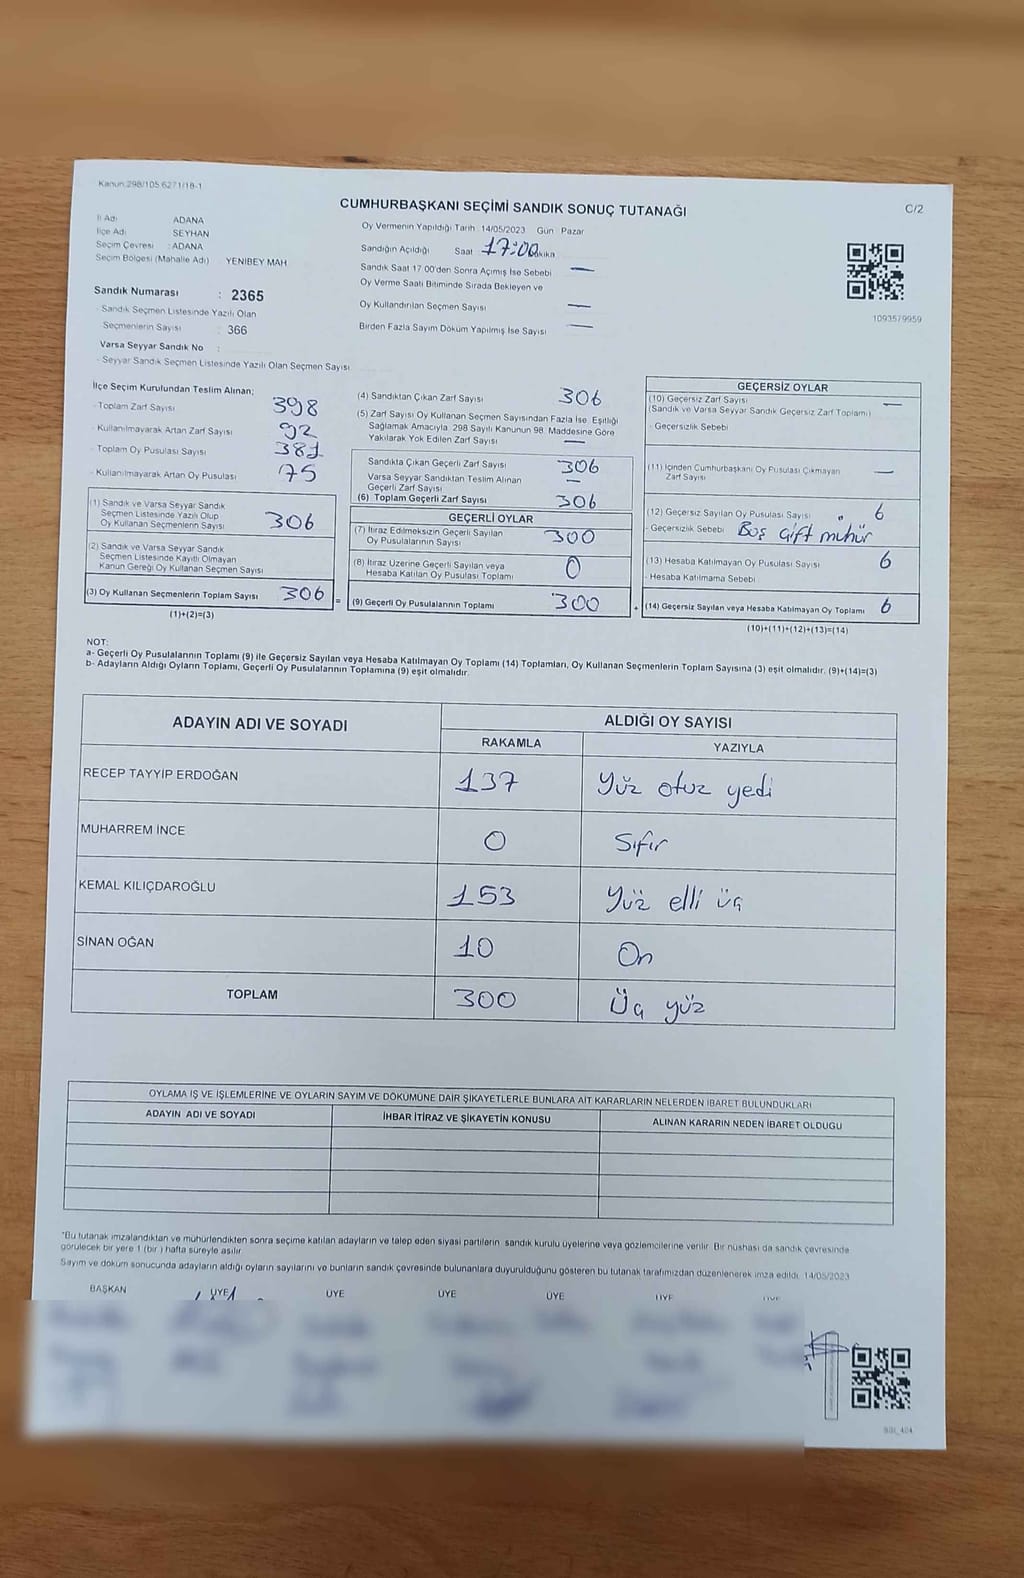 Kanun:298/105,6271/18-1
C/2
CUMHURBAŞKANI SEÇİMİ SANDIK SONUÇ TUTANAĞI
İl Adı ADANA
İlçe Adı SEYHAN
Seçim Çevresi : ADANA
Seçim Bölgesi (Mahalle Adı) YENİBEY MAH.
Sandık Numarası : 2365
- Sandık Seçmen Listesinde Yazılı Olan
Seçmenlerin Sayısı : 366
Varsa Seyyar Sandık No :
- Seyyar Sandık Seçmen Listesinde Yazılı Olan Seçmen Sayısı
Oy Vermenin Yapıldığı Tarih 14/05/2023 Gün Pazar
Sandığın Açıldığı Saat 17:00 Dakika
Sandık Saat 17.00'den Sonra Açılmış İse Sebebi —
Oy Verme Saati Bitiminde Sırada Bekleyen ve
Oy Kullandırılan Seçmen Sayısı —
Birden Fazla Sayım Döküm Yapılmış İse Sayısı —
1093579959
İlçe Seçim Kurulundan Teslim Alınan;
- Toplam Zarf Sayısı 398
- Kullanılmayarak Artan Zarf Sayısı 92
- Toplam Oy Pusulası Sayısı 381
- Kullanılmayarak Artan Oy Pusulası 75
(1) Sandık ve Varsa Seyyar Sandık
Seçmen Listesinde Yazılı Olup
Oy Kullanan Seçmenlerin Sayısı 306
(2) Sandık ve Varsa Seyyar Sandık
Seçmen Listesinde Kayıtlı Olmayan
Kanun Gereği Oy Kullanan Seçmen Sayısı
(3) Oy Kullanan Seçmenlerin Toplam Sayısı 306
(1)+(2)=(3)
=
(4) Sandıktan Çıkan Zarf Sayısı 306
(5) Zarf Sayısı Oy Kullanan Seçmen Sayısından Fazla İse, Eşitliği
Sağlamak Amacıyla 298 Sayılı Kanunun 98. Maddesine Göre
Yakılarak Yok Edilen Zarf Sayısı —
Sandıkta Çıkan Geçerli Zarf Sayısı 306
Varsa Seyyar Sandıktan Teslim Alınan
Geçerli Zarf Sayısı —
(6) Toplam Geçerli Zarf Sayısı 306
GEÇERLİ OYLAR
(7) İtiraz Edilmeksizin Geçerli Sayılan
Oy Pusulalarının Sayısı 300
(8) İtiraz Üzerine Geçerli Sayılan veya
Hesaba Katılan Oy Pusulası Toplamı 0
(9) Geçerli Oy Pusulalarının Toplamı 300
+
GEÇERSİZ OYLAR
(10) Geçersiz Zarf Sayısı —
(Sandık ve Varsa Seyyar Sandık Geçersiz Zarf Toplamı)
- Geçersizlik Sebebi
(11) İçinden Cumhurbaşkanı Oy Pusulası Çıkmayan
Zarf Sayısı —
(12) Geçersiz Sayılan Oy Pusulası Sayısı 6
- Geçersizlik Sebebi Boş çift mühür
(13) Hesaba Katılmayan Oy Pusulası Sayısı 6
- Hesaba Katılmama Sebebi
(14) Geçersiz Sayılan veya Hesaba Katılmayan Oy Toplamı 6
(10)+(11)+(12)+(13)=(14)
NOT:
a- Geçerli Oy Pusulalarının Toplamı (9) ile Geçersiz Sayılan veya Hesaba Katılmayan Oy Toplamı (14) Toplamları, Oy Kullanan Seçmenlerin Toplam Sayısına (3) eşit olmalıdır. (9)+(14)=(3)
b- Adayların Aldığı Oyların Toplamı, Geçerli Oy Pusulalarının Toplamına (9) eşit olmalıdır.
ADAYIN ADI VE SOYADI
ALDIĞI OY SAYISI
RAKAMLA YAZIYLA
RECEP TAYYİP ERDOĞAN 137 Yüz otuz yedi
MUHARREM İNCE 0 Sıfır
KEMAL KILIÇDAROĞLU 153 Yüz elli üç
SİNAN OĞAN 10 On
TOPLAM 300 Üç yüz
OYLAMA İŞ VE İŞLEMLERİNE VE OYLARIN SAYIM VE DÖKÜMÜNE DAİR ŞİKAYETLERLE BUNLARA AİT KARARLARIN NELERDEN İBARET BULUNDUKLARI
ADAYIN ADI VE SOYADI İHBAR İTİRAZ VE ŞİKAYETİN KONUSU ALINAN KARARIN NEDEN İBARET OLDUĞU
*Bu tutanak imzalandıktan ve mühürlendikten sonra seçime katılan adayların ve talep eden siyasi partilerin sandık kurulu üyelerine veya gözlemcilerine verilir. Bir nüshası da sandık çevresinde
görülecek bir yere 1 (bir) hafta süreyle asılır.
Sayım ve döküm sonucunda adayların aldığı oyların sayılarını ve bunların sandık çevresinde bulunanlara duyurulduğunu gösteren bu tutanak tarafımızdan düzenlenerek imza edildi. 14/05/2023
BAŞKAN ÜYE ÜYE ÜYE ÜYE ÜYE